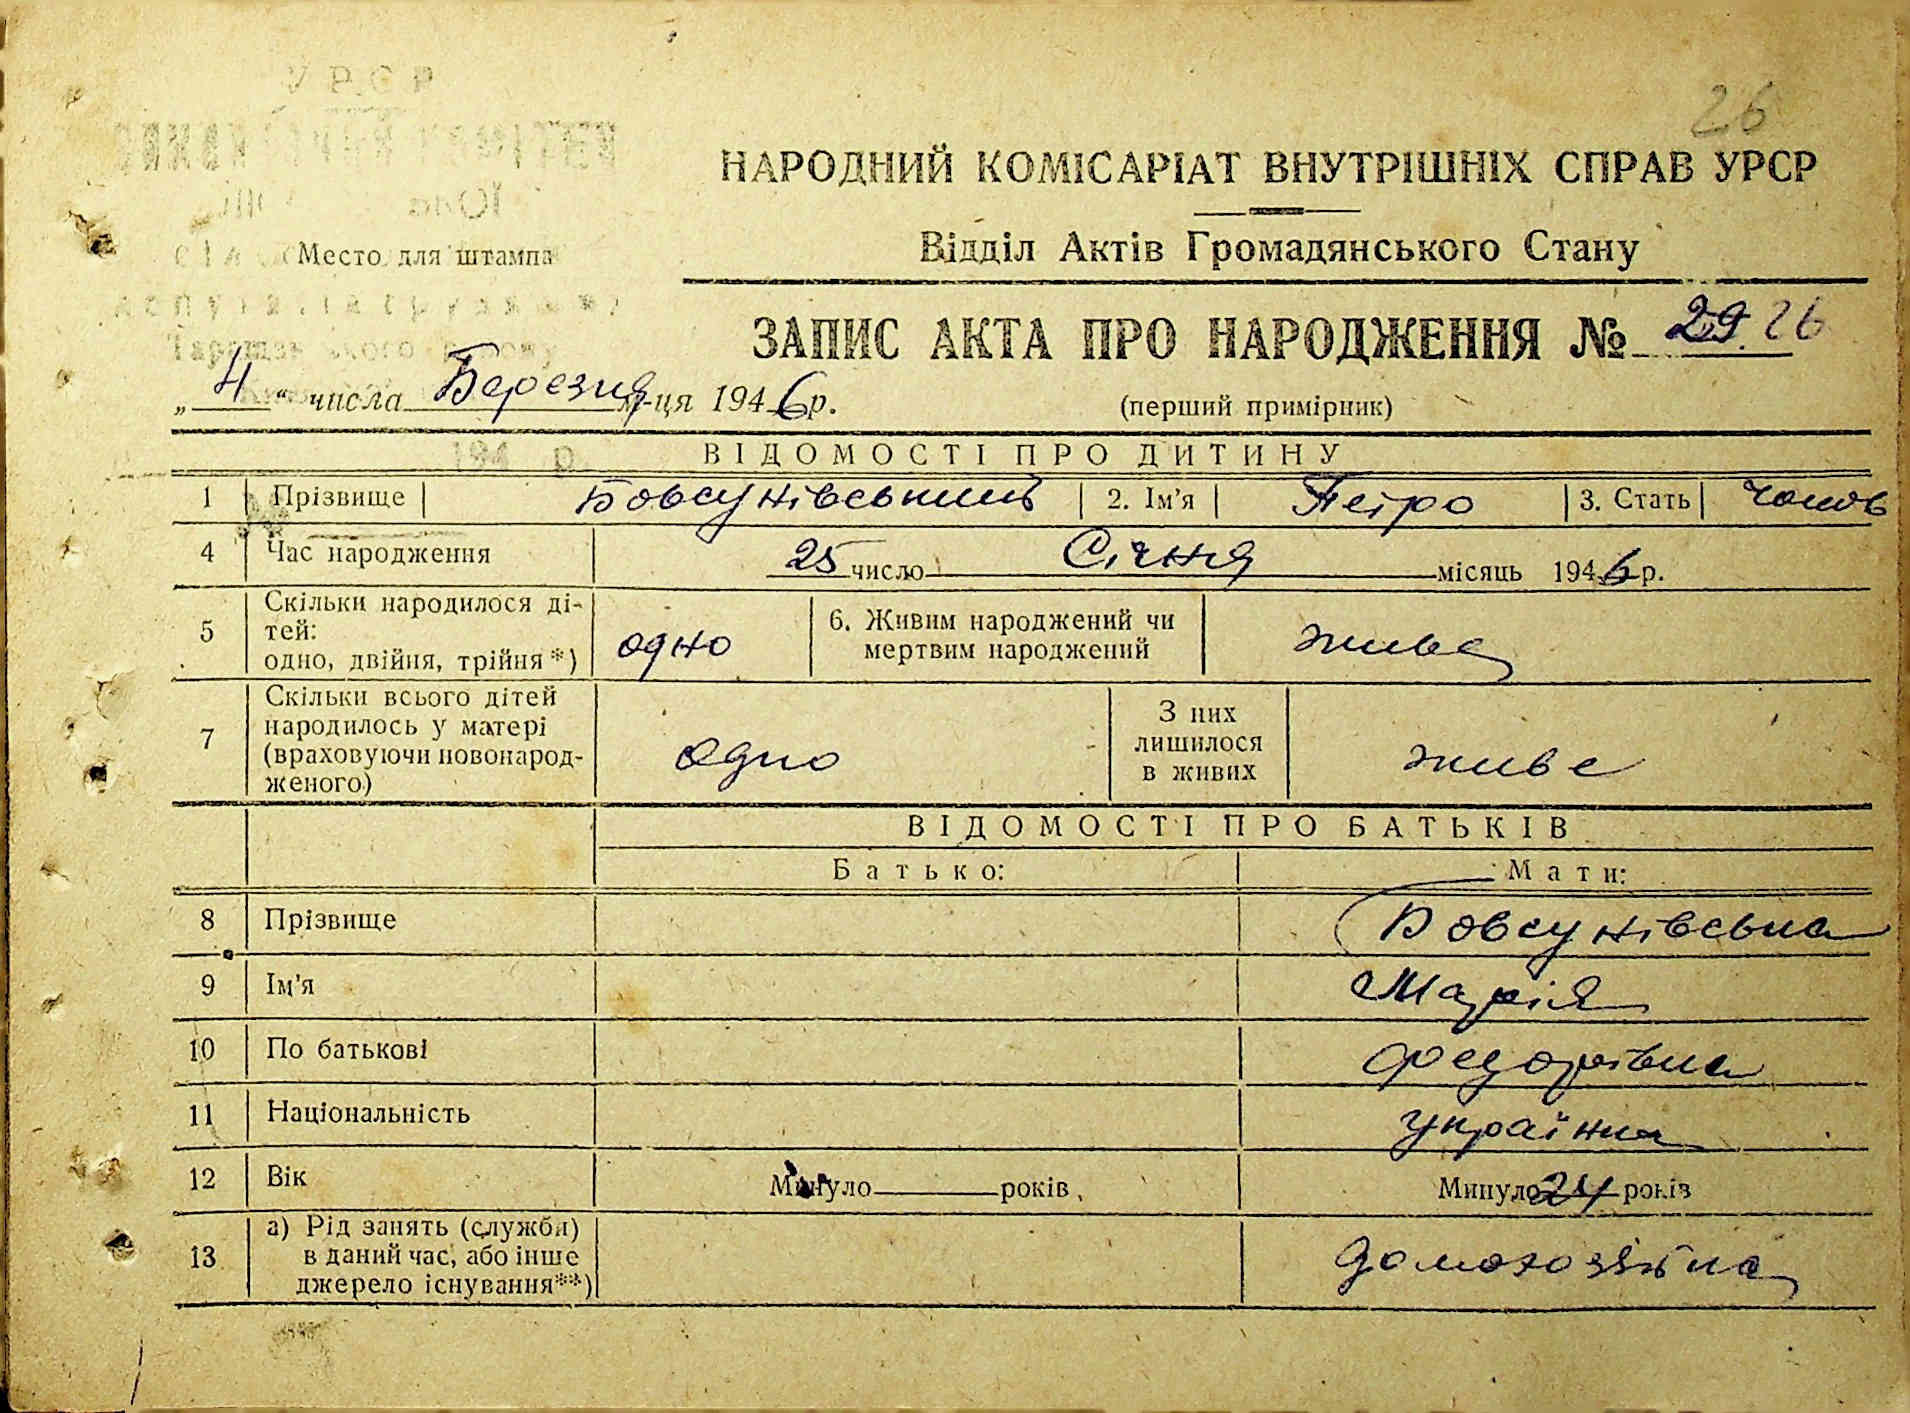 УРСР
26
НАРОДНИЙ КОМІСАРІАТ ВНУТРІШНІХ СПРАВ УРСР
Відділ Актів Громадянського Стану
Место для штампа
ЗАПИС АКТА ПРО НАРОДЖЕННЯ № 29. 26
„4“ числа Березня м-ця 1946 р.
(перший примірник)
194 р.
ВІДОМОСТІ ПРО ДИТИНУ
1 Прізвище Бовсунівський 2. Ім'я Петро 3. Стать чолов
4 Час народження 25 число Січня місяць 1946 р.
5 Скільки народилося ді-
тей:
одно, двійня, трійня*) одно 6. Живим народжений чи
мертвим народжений живе
7 Скільки всього дітей
народилось у матері
(враховуючи новонарод-
женого) одно З них
лишилося
в живих живе
ВІДОМОСТІ ПРО БАТЬКІВ
Батько: Мати:
8 Прізвище Бовсунівська
9 Ім'я Марія
10 По батькові Федорівна
11 Національність українка
12 Вік Минуло років, Минуло 24 років
13 а) Рід занять (служби)
в даний час, або інше
джерело існування**) домохозяйка